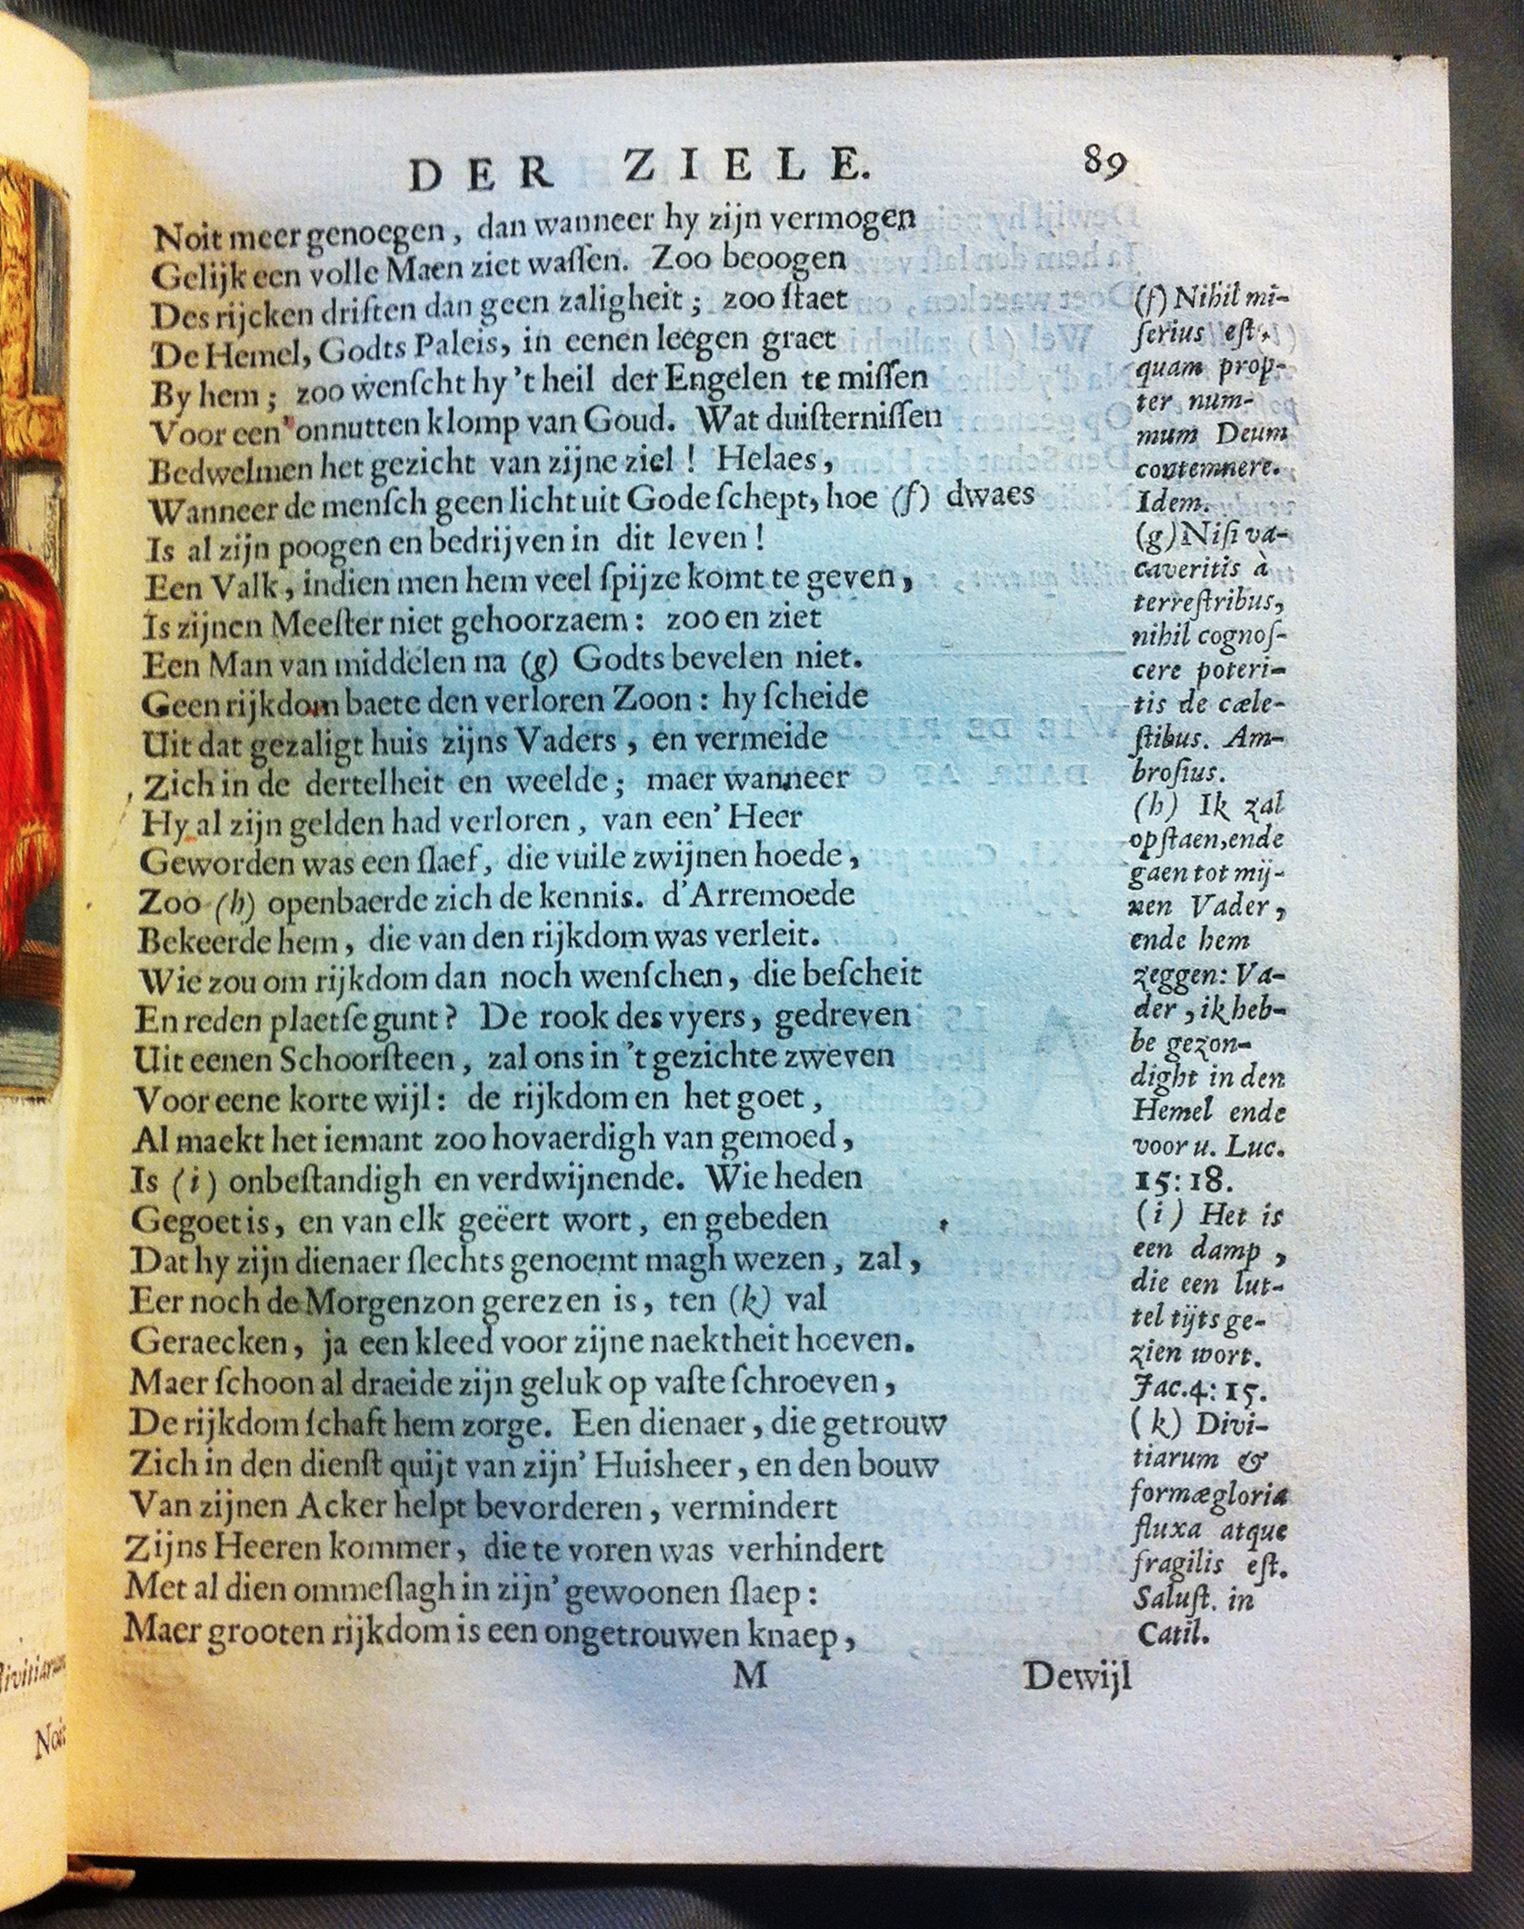 DER ZIELE. 89
Noit meer genoegen, dan wanneer hy zijn vermogen
Gelijk een volle Maen ziet waſſen. Zoo beoogen
Des rijcken driften dan geen zaligheit; zoo ſtaet
De Hemel, Godts Paleis, in eenen leegen graet
By hem; zoo wenſcht hy 't heil der Engelen te miſſen
Voor een' onnutten klomp van Goud. Wat duiſterniſſen
Bedwelmen het gezicht van zijne ziel! Helaes,
Wanneer de menſch geen licht uit Gode ſchept, hoe (f) dwaes
Is al zijn poogen en bedrijven in dit leven!
Een Valk, indien men hem veel ſpijze komt te geven,
Is zijnen Meeſter niet gehoorzaem: zoo en ziet
Een Man van middelen na (g) Godts bevelen niet.
Geen rijkdom baete den verloren Zoon: hy ſcheide
Uit dat gezaligt huis zijns Vaders, en vermeide
Zich in de dertelheit en weelde; maer wanneer
Hy al zijn gelden had verloren, van een' Heer
Geworden was een ſlaef, die vuile zwijnen hoede,
Zoo (h) openbaerde zich de kennis. d'Arremoede
Bekeerde hem, die van den rijkdom was verleit.
Wie zou om rijkdom dan noch wenſchen, die beſcheit
En reden plaetſe gunt? De rook des vyers, gedreven
Uit eenen Schoorſteen, zal ons in 't gezichte zweven
Voor eene korte wijl: de rijkdom en het goet,
Al maekt het iemant zoo hovaerdigh van gemoed,
Is (i) onbeſtandigh en verdwijnende. Wie heden
Gegoet is, en van elk geëert wort, en gebeden
Dat hy zijn dienaer ſlechts genoemt magh wezen, zal,
Eer noch de Morgenzon gerezen is, ten (k) val
Geraecken, ja een kleed voor zijne naektheit hoeven.
Maer ſchoon al draeide zijn geluk op vaſte ſchroeven,
De rijkdom ſchaft hem zorge. Een dienaer, die getrouw
Zich in den dienſt quijt van zijn' Huisheer, en den bouw
Van zijnen Acker helpt bevorderen, vermindert
Zijns Heeren kommer, die te voren was verhindert
Met al dien ommeſlagh in zijn' gewoonen ſlaep:
Maer grooten rijkdom is een ongetrouwen knaep,
M Dewijl
(f) Nihil mi-
ſerius eſt,
quam prop-
ter num-
mum Deum
contemnere.
Idem.
(g) Niſi va-
caveritis à
terreſtribus,
nihil cognoſ-
cere poteri-
tis de cæle-
ſtibus. Am-
broſius.
(h) Ik zal
opſtaen, ende
gaen tot mij-
nen Vader,
ende hem
zeggen: Va-
der, ik heb-
be gezon-
dight in den
Hemel ende
voor u. Luc.
15:18.
(i) Het is
een damp,
die een lut-
tel tijts ge-
zien wort.
Jac. 4:15.
(k) Divi-
tiarum &
formæ gloria
fluxa atque
fragilis eſt.
Saluſt. in
Catil.